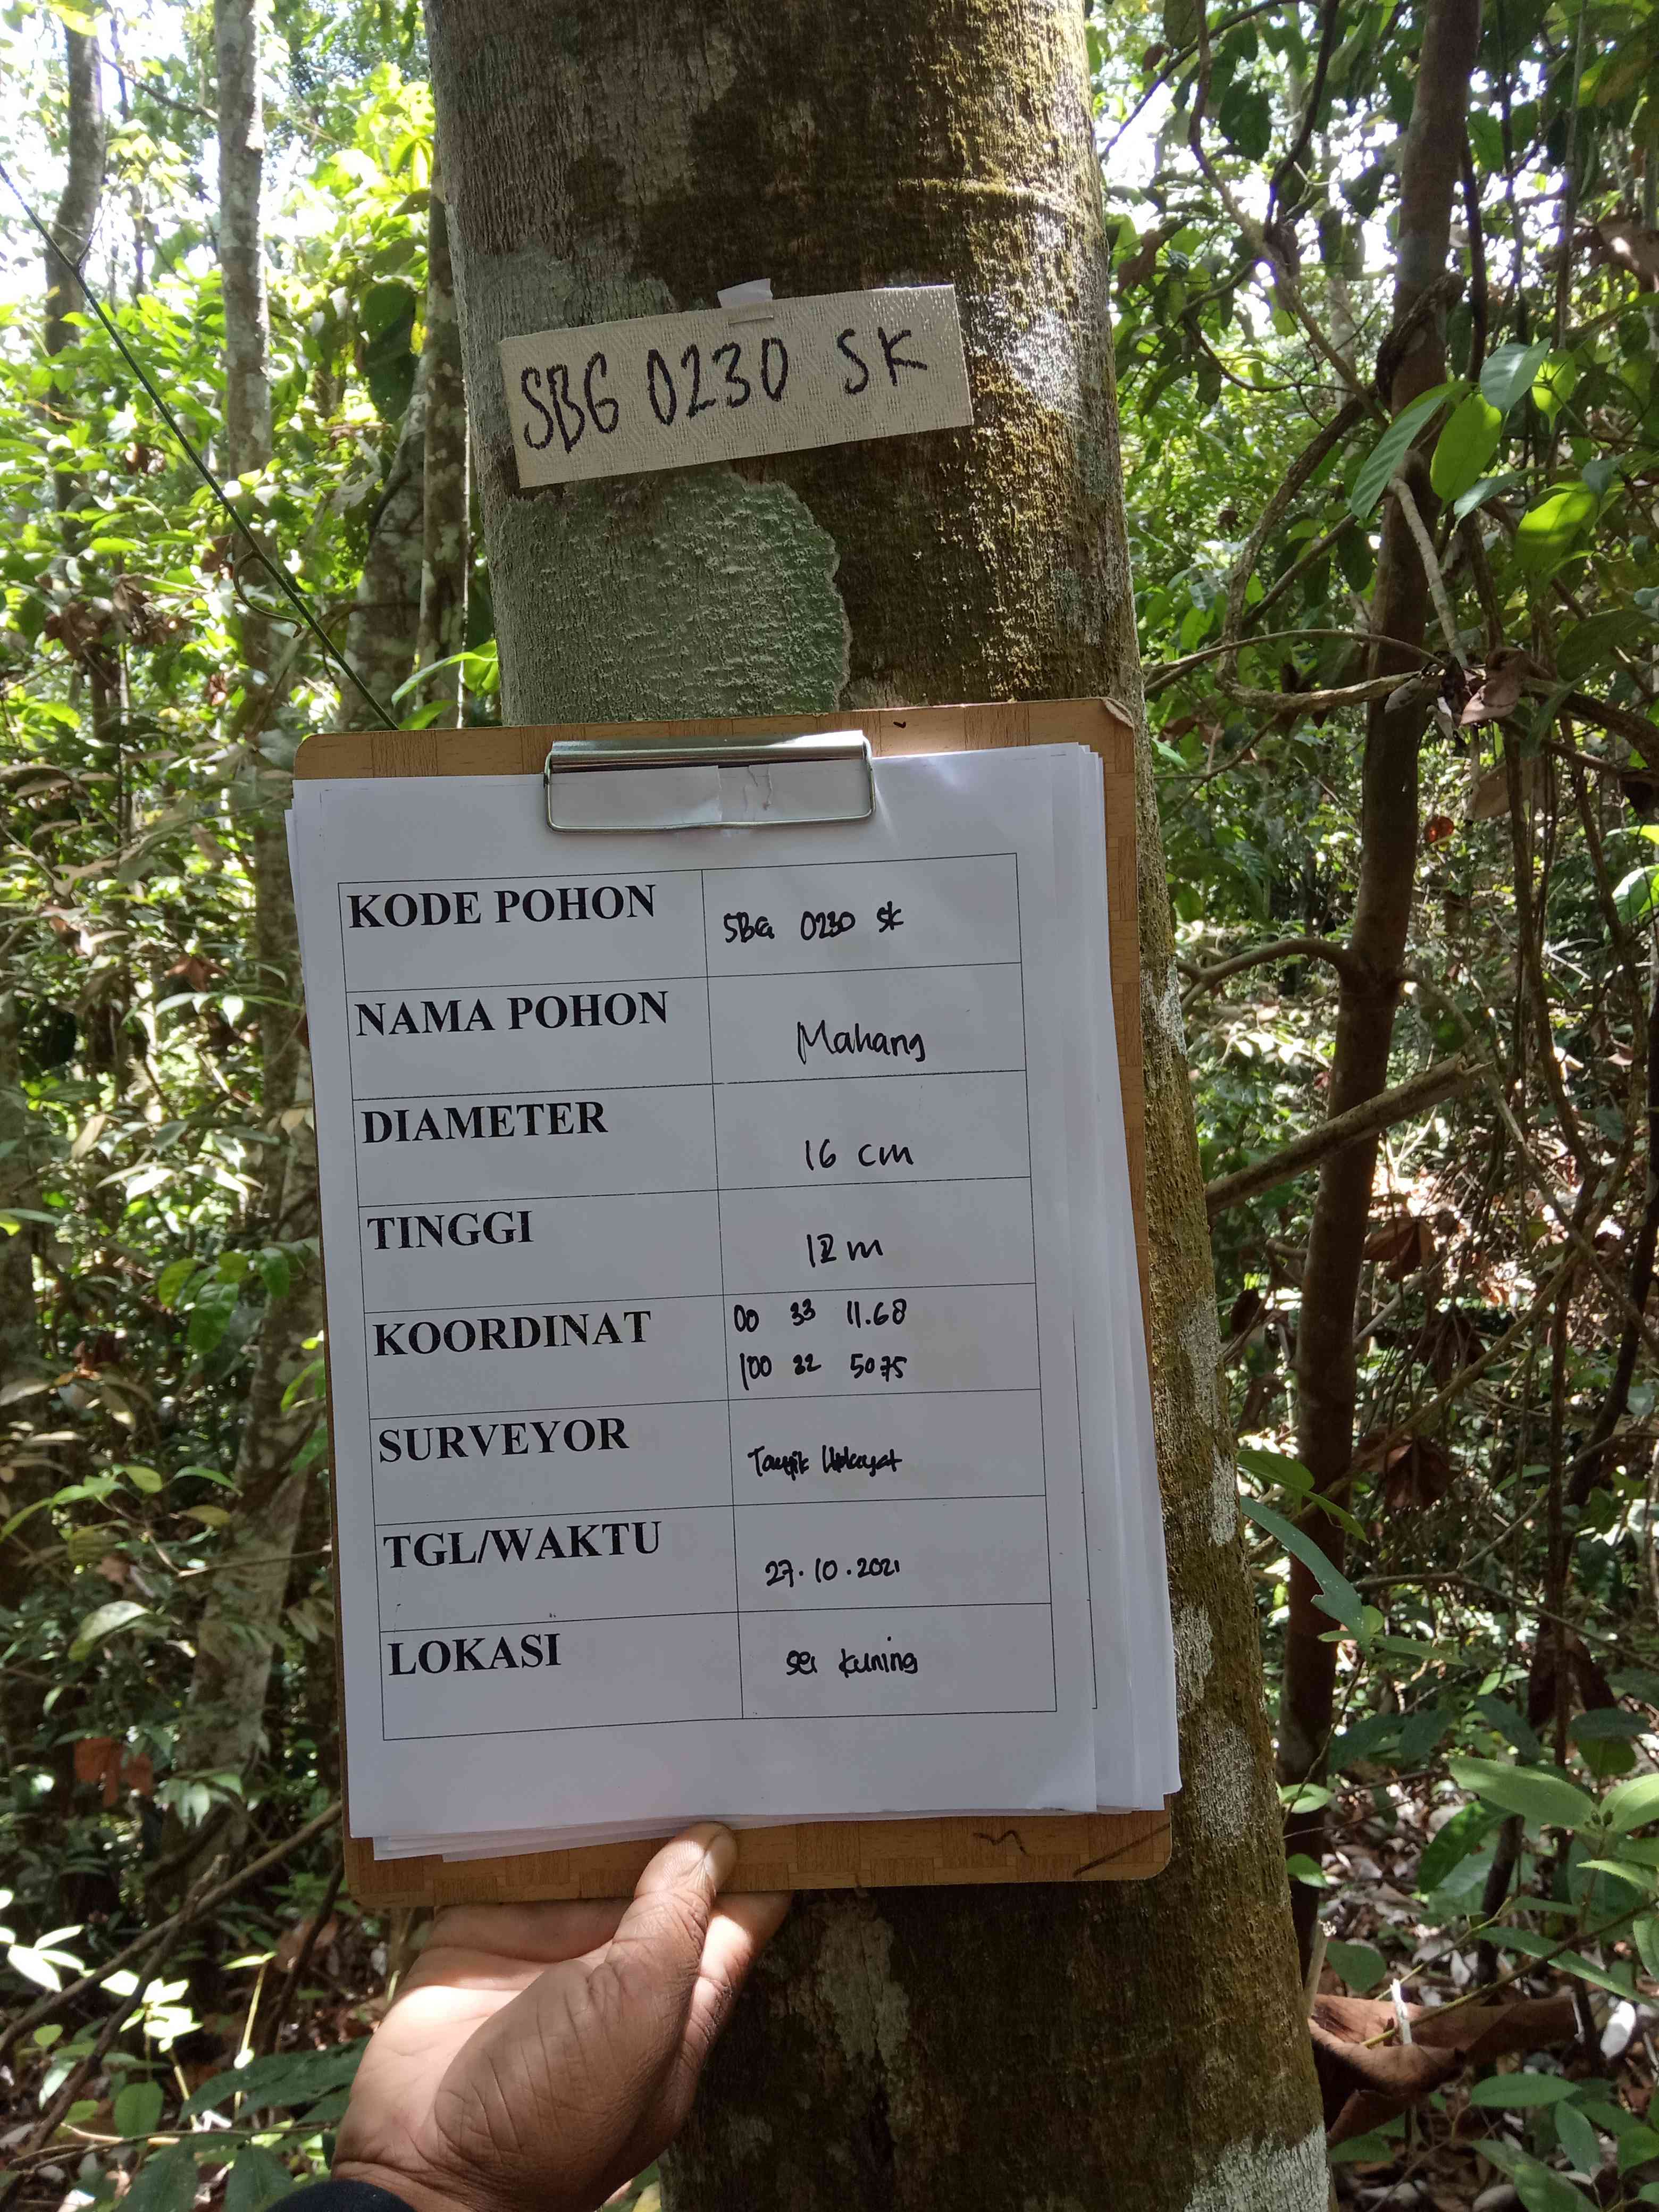 SBG 0230 SK
KODE POHON SBG 0230 SK
NAMA POHON Mahang
DIAMETER 16 cm
TINGGI 12 m
KOORDINAT 00 33 11.68
100 32 5075
SURVEYOR Taufik Hidayat
TGL/WAKTU 27.10.2021
LOKASI sei kuning